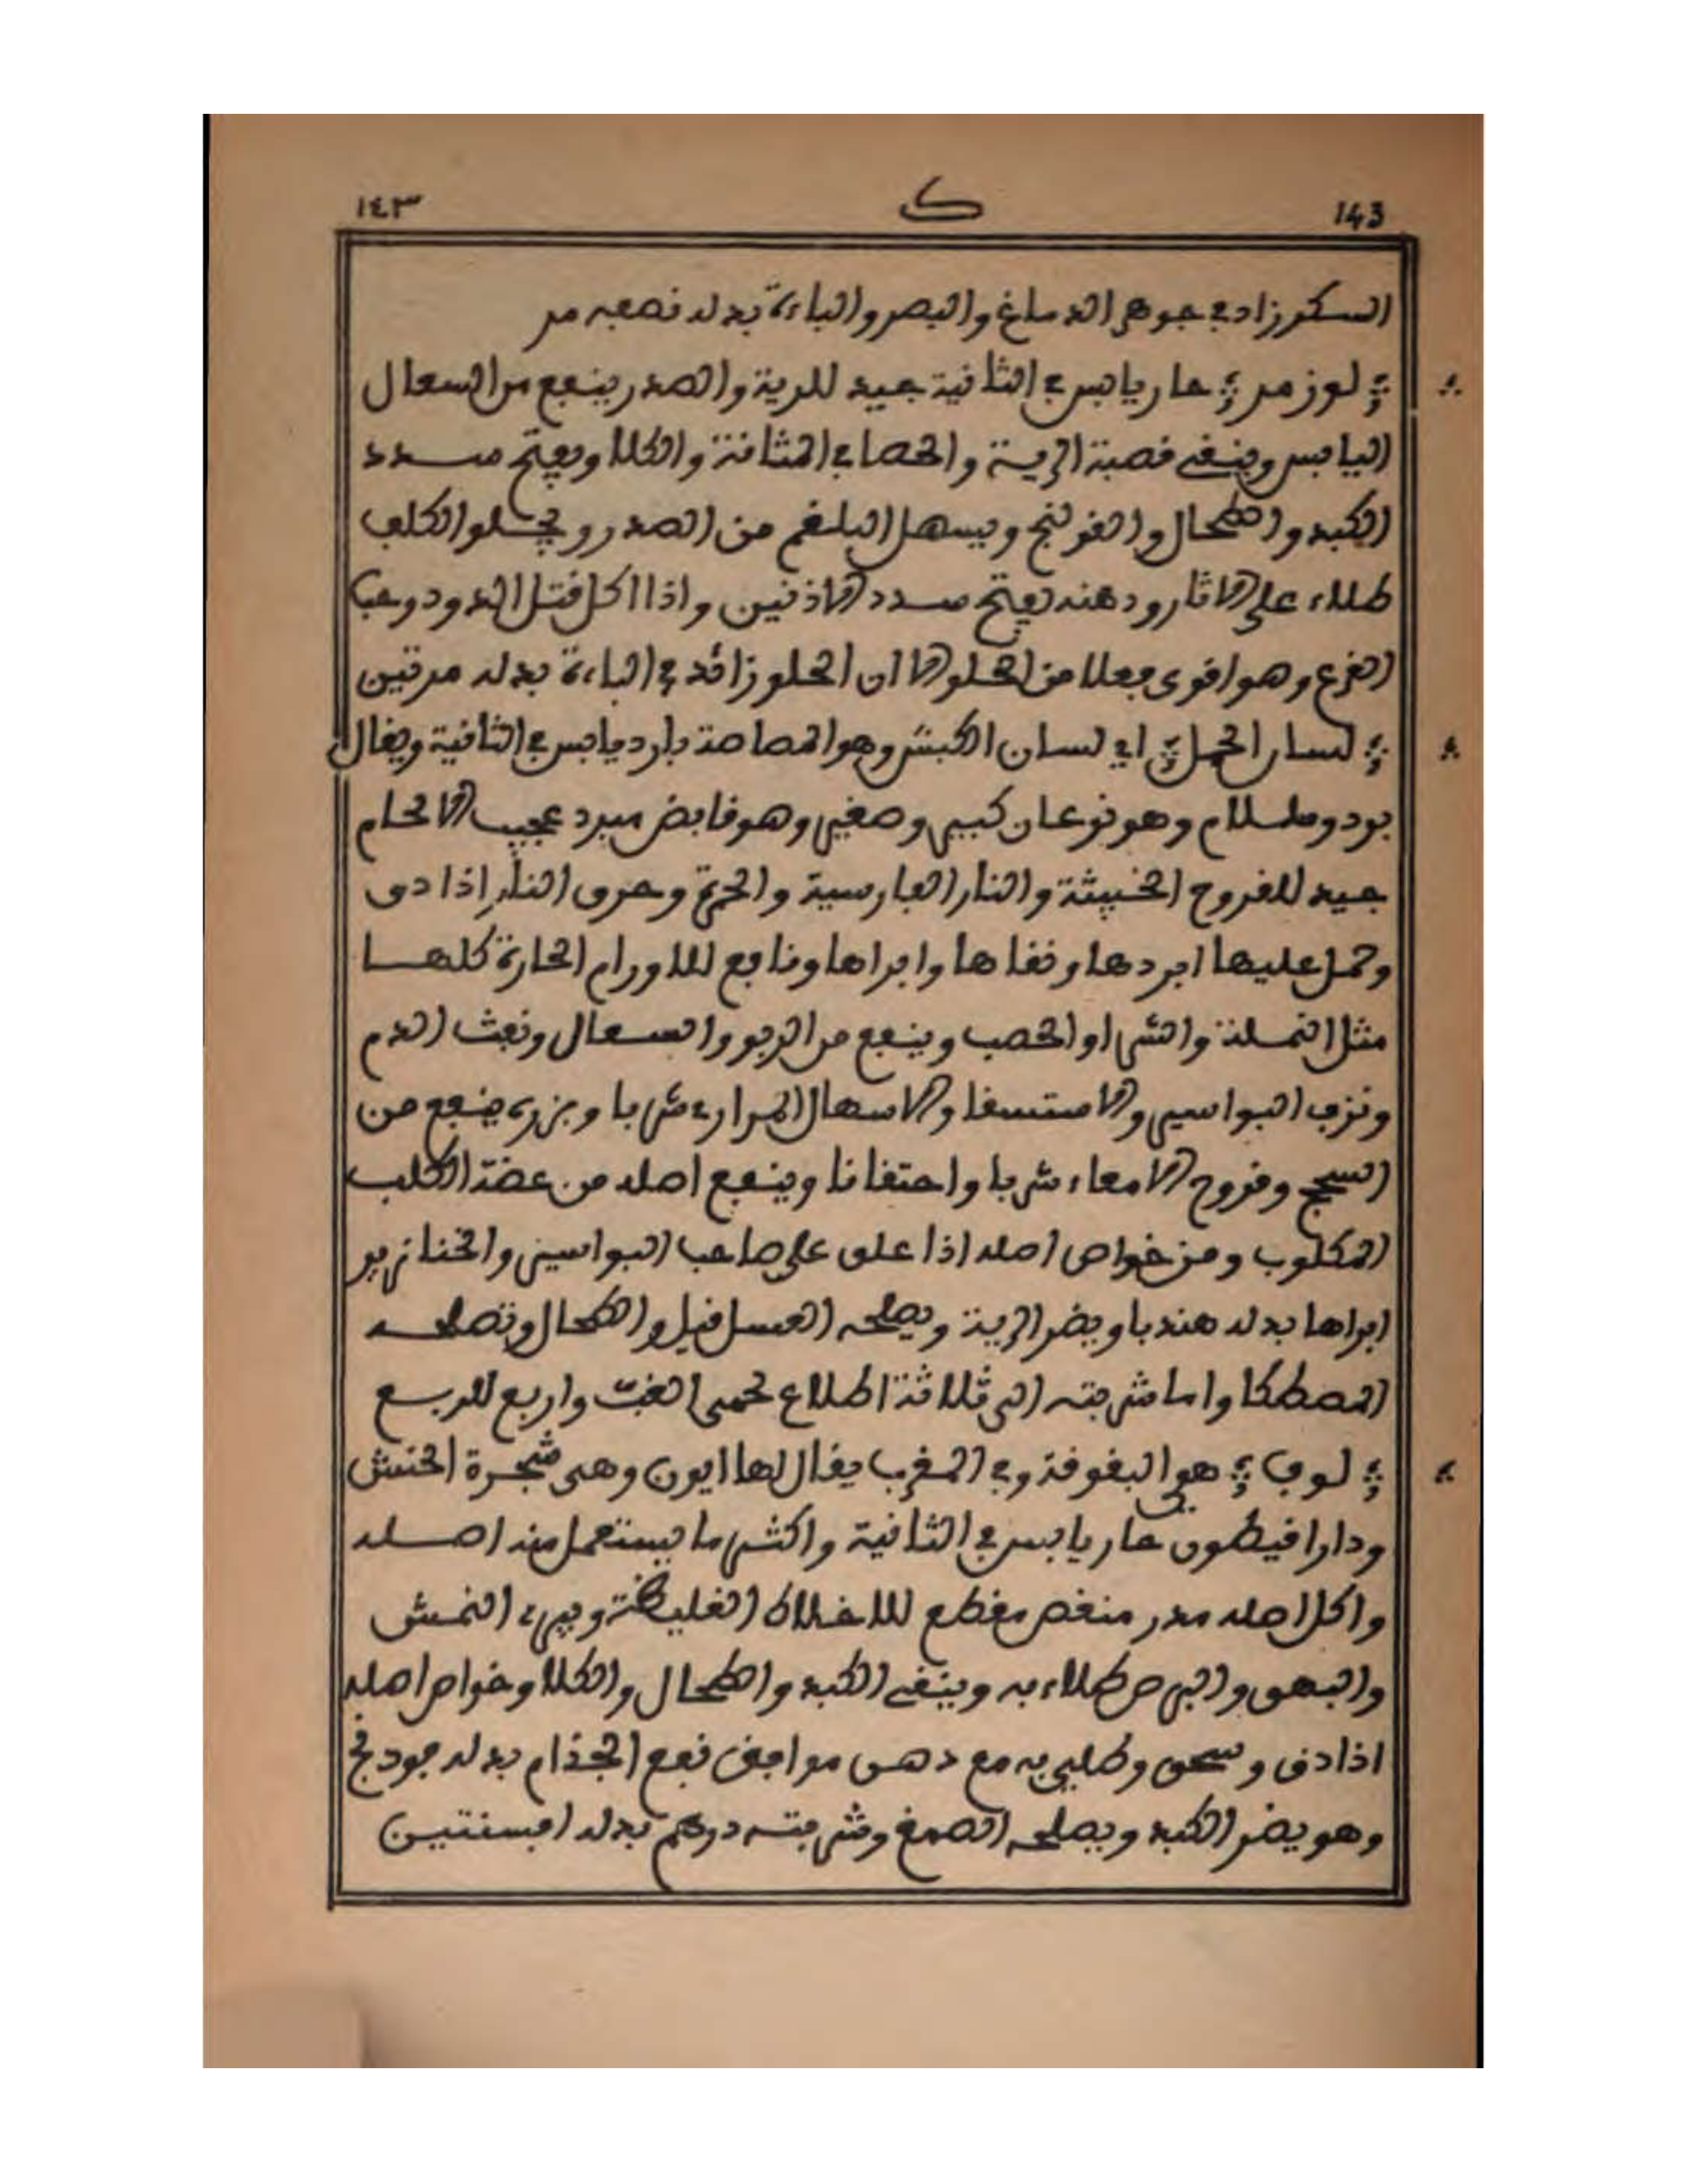 ١٤٣ ک 143
السكر زاد في جوهر الدماغ والبصر والباءة بدله نصعبه مر
؞ لوز مر ؞ حار يابس في الثانية جيد للرية والصدر ينفع من السعال
اليابس وينقي قصبة الرية والحصا في المثانة والكلا ويفتح سدد
الكبد والطحال والقولنج ويسهل البلغم من الصدر ويجلو الكلف
طلاء على الاثار ودهنه يفتح سدد الاذنين واذا اكل قتل الدود وحب
القرع وهو اقوى فعلا من الحلو الا ان الحلو زائد في الباءة بدله مرتين
؞ لسان الحمل ؞ اي لسان الكبش وهو المصاصة بارد يابس في الثانية ويقال
بردوسلام وهو نوعان كبير وصغير وهو قابض مبرد عجيب الالحام
جيد للقروح الخبيثة والنار الفارسية والحمرة وحرق النار إذا دق
وحمل عليها ابردها ونقاها وابراها ونافع للاورام الحارة كلها
مثل النملة والشرا والحصب وينفع من الربو والسعال ونفث الدم
ونزف البواسير والاستسقا والاسهال المراري شربا وبزره ينفع من
السحج وقروح الامعاء شربا واحتقانا وينفع اصله من عضة الكلب
المكلوب ومن خواص اصله اذا علق على صاحب البواسير والخنازير
ابراها بدله هندبا ويضر الرية ويصلحه العسل قيل والطحال وتصلحه
المصطكا واما شربته الى ثلاثة اضلاع لحمى الغب واربع للربع
؞ لوف ؞ هو البقوقة وفي المغرب يقال لها ايرن وهى شجرة الحنش
ودارافيطون حار يابس في الثانية واكثر ما يستعمل منه اصله
واكل اصله مدر منغص مقطع للاخلاط الغليظة ويبرىء النمش
والبهق والبرص طلاء به وينقي الكبد والطحال والكلا وخواص اصله
اذا دق وسحق وطلي به مع دهن موافق نفع الجذام بدله فودنج
وهو يضر الكبد ويصلحه الصمغ وشربته درهم بدله افسنتين